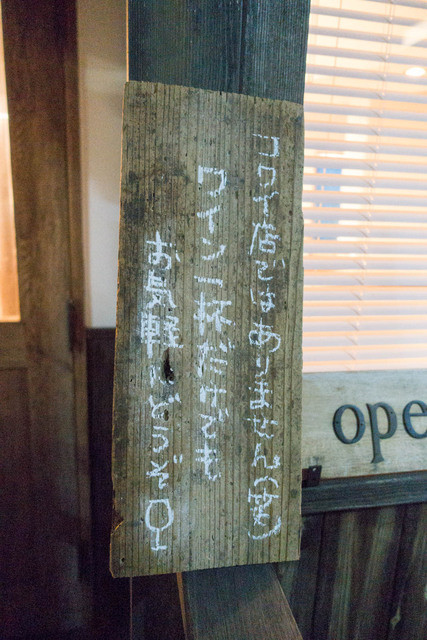 コワイ店ではありません(笑)
ワイン一杯だけでも
お気軽にどうぞ
ope